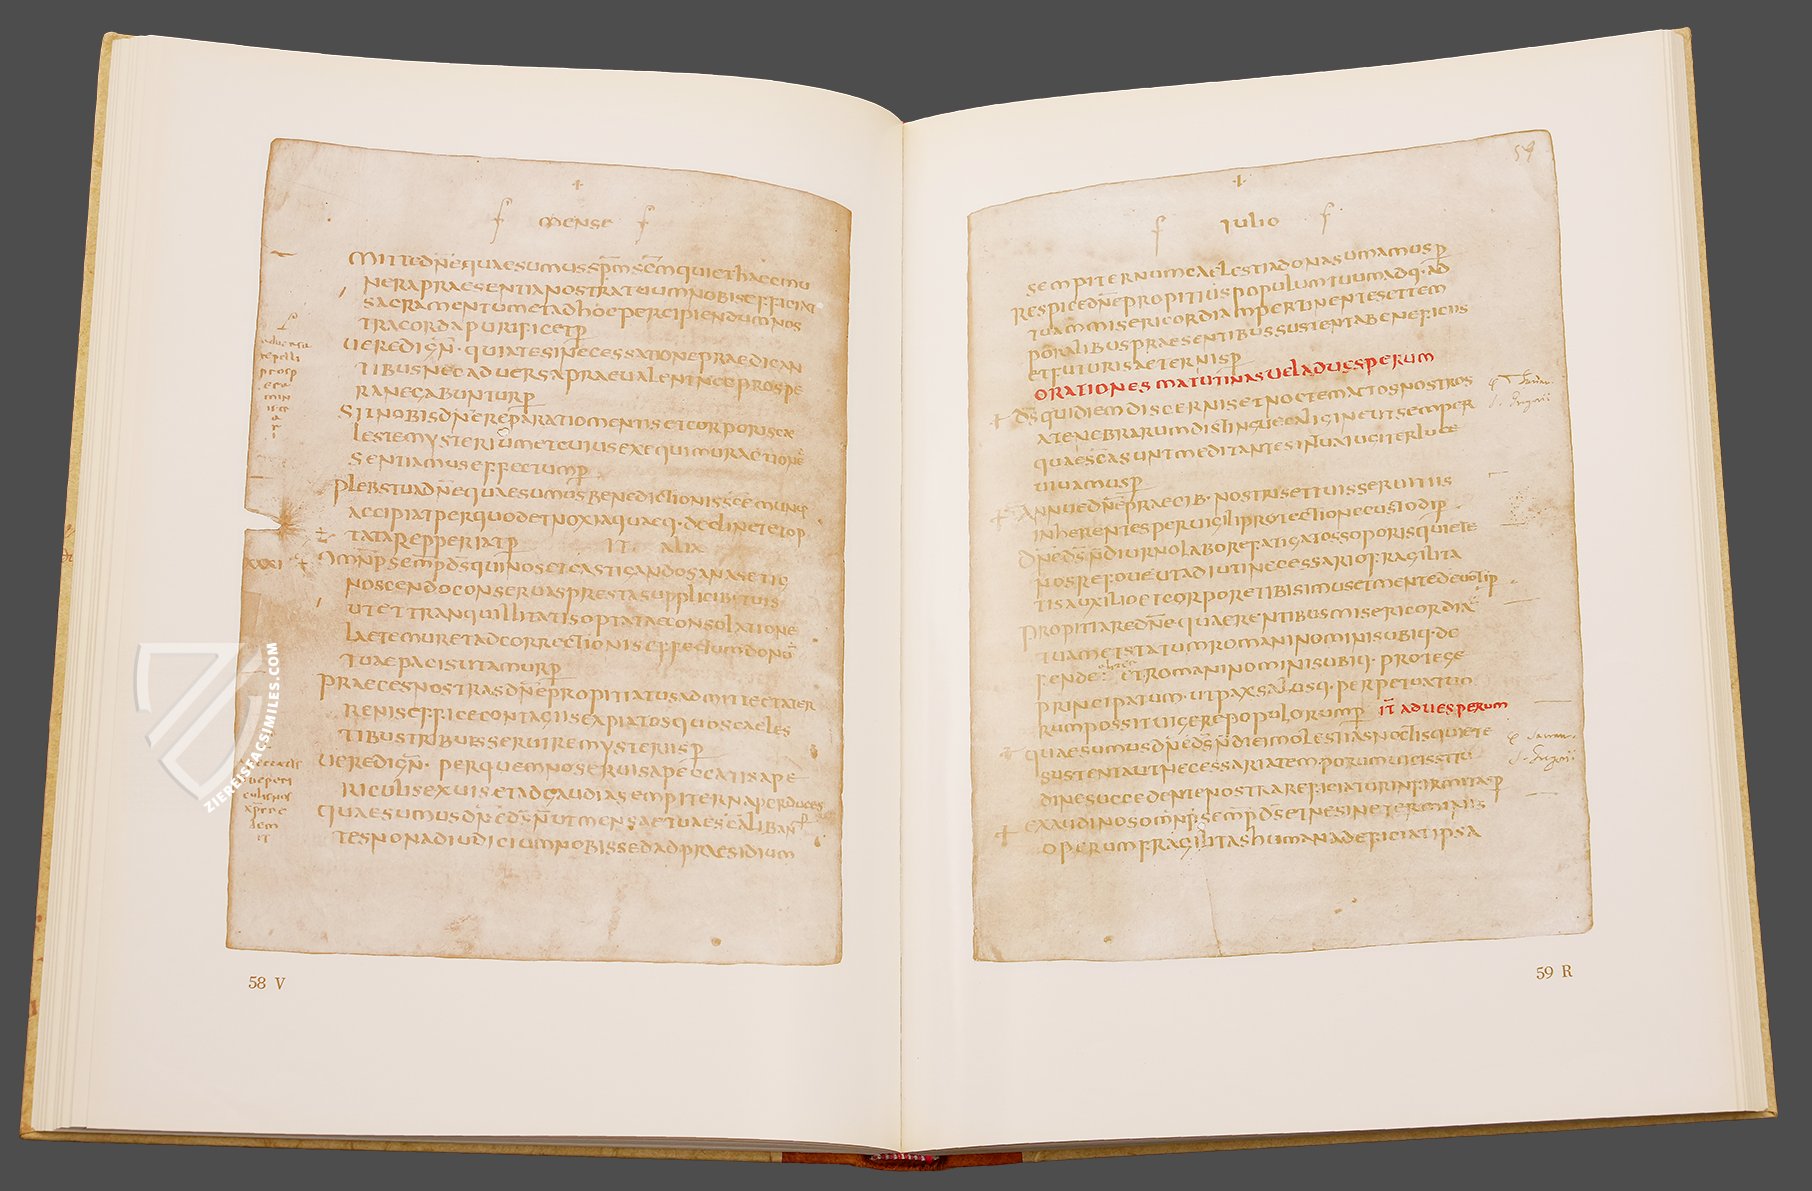 +
mense
MITTEDNEQUAESUMUSSPMSCMQUIETHAECMU
NERAPRAESENTIANOSTRATUUMNOBISEFFICIAT
SACRAMENTUMETADHOCPERCIPIENDUMNOS
TRACORDAPURIFICETP
UEREDIGN· QUIATESINECESSATIONEPRAEDICAN
TIBUSNECADUERSAPRAEUALENTNECPROSPE
RANEGABUNTURP
SITNOBISDNEREPARATIOMENTISETCORPORISCAE
LESTEMYSTERIUMETCUIUSEXEQUIMURACTIONE
SENTIAMUSEFFECTUMP
PLEBSTUADNEQUAESUMUSBENEDICTIONISSCEMUNUS
ACCIPIATPERQUODETNOXIAQUAEQ·DECLINETETOP
TATAREPPERIATP IT ALIA
XXXI + OMNPSEMPDSQUINOSETCASTIGANDOSANASETIG
NOSCENDOCONSERUASPRESTASUPPLICIBTUIS
UTETTRANQUILLITATISOPTATAECONSOLATIONE
LAETEMURETADCORRECTIONISEFFECTUMDONO
TUAEPACISUTAMURP
PRAECESNOSTRASDNEPROPITIATUSADMITTEETATER
RENISEFFICECONTAGIISEXPIATOSQUOSCAELES
TIBUSTRIBUISSERUIREMYSTERIISP
UEREDIGN· PERQUEMNOSERUISAPECCATISAPE
RICULISEXUISETADGAUDIASEMPITERNAPERDUCES
QUAESUMUSDNEDSNUTMENSAETUAESCALIBAN
TESNONADIUDICIUMNOBISSEDADPRAESIDIUM
58 V
59
+
Iulio
SEMPITERNUMCAELESTIADONASUMAMUSP
RESPICEDNEPROPITIUSPOPULUMTUUMADQ·AD
TUAMMISERICORDIAMPERTINENTESETTEM
PORALIBUSPRAESENTIBUSSUSTENTABENEFICIIS
ETFUTURISAETERNISP
ORATIONES MATUTINASUELADUESPERUM
+ DSQUIDIEMDISCERNISETNOCTEMACTOSNOSTROS
ATENEBRARUMDISTINGUECALIGINEUTSEMPER
QUAESCASUNTMEDITANTESINTUAIUGITERLUCE
UIUAMUSP
+ ANNUEDNEPRAECIB·NOSTRISETTUISSERUITIIS
INHERENTESPERUIGILIPROTECTIONECUSTODIP
DNEDSNDIURNOLABOREFATIGATOSSOPORISQUIETE
NOSREFOUEUTADIUTINECESSARIOFRAGILITA
TISAUXILIOETCORPORETIBISIMUSETMENTEDEUOTIP
PROPITIAREDNEQUAERENTIBUSMISERICORDIA
TUAMETSTATUMROMANINOMINISUBIQ·DE
FENDE: ETROMANINOMINISUBIQ·PROTEGE
PRINCIPATUM·UTPAXSALUSQ·PERPETUATUO
RUMPOSSITUIGEREPOPULORUMP IT ADUESPERUM
+ QUAESUMUSDNEDSNDIEIMOLESTIASNOCTISQUIETE
SUSTENTAUTNECESSARIATEMPORUMUICISSITU
DINESUCCEDENTENOSTRAREFICIATURINFIRMITASP
+ EXAUDINOSOMNPSEMPDSETNESINETERMINIS
OPERUMFRAGILITASHUMANADEFICIATIPSA
59 R
ZIEREISFACSIMILES.COM